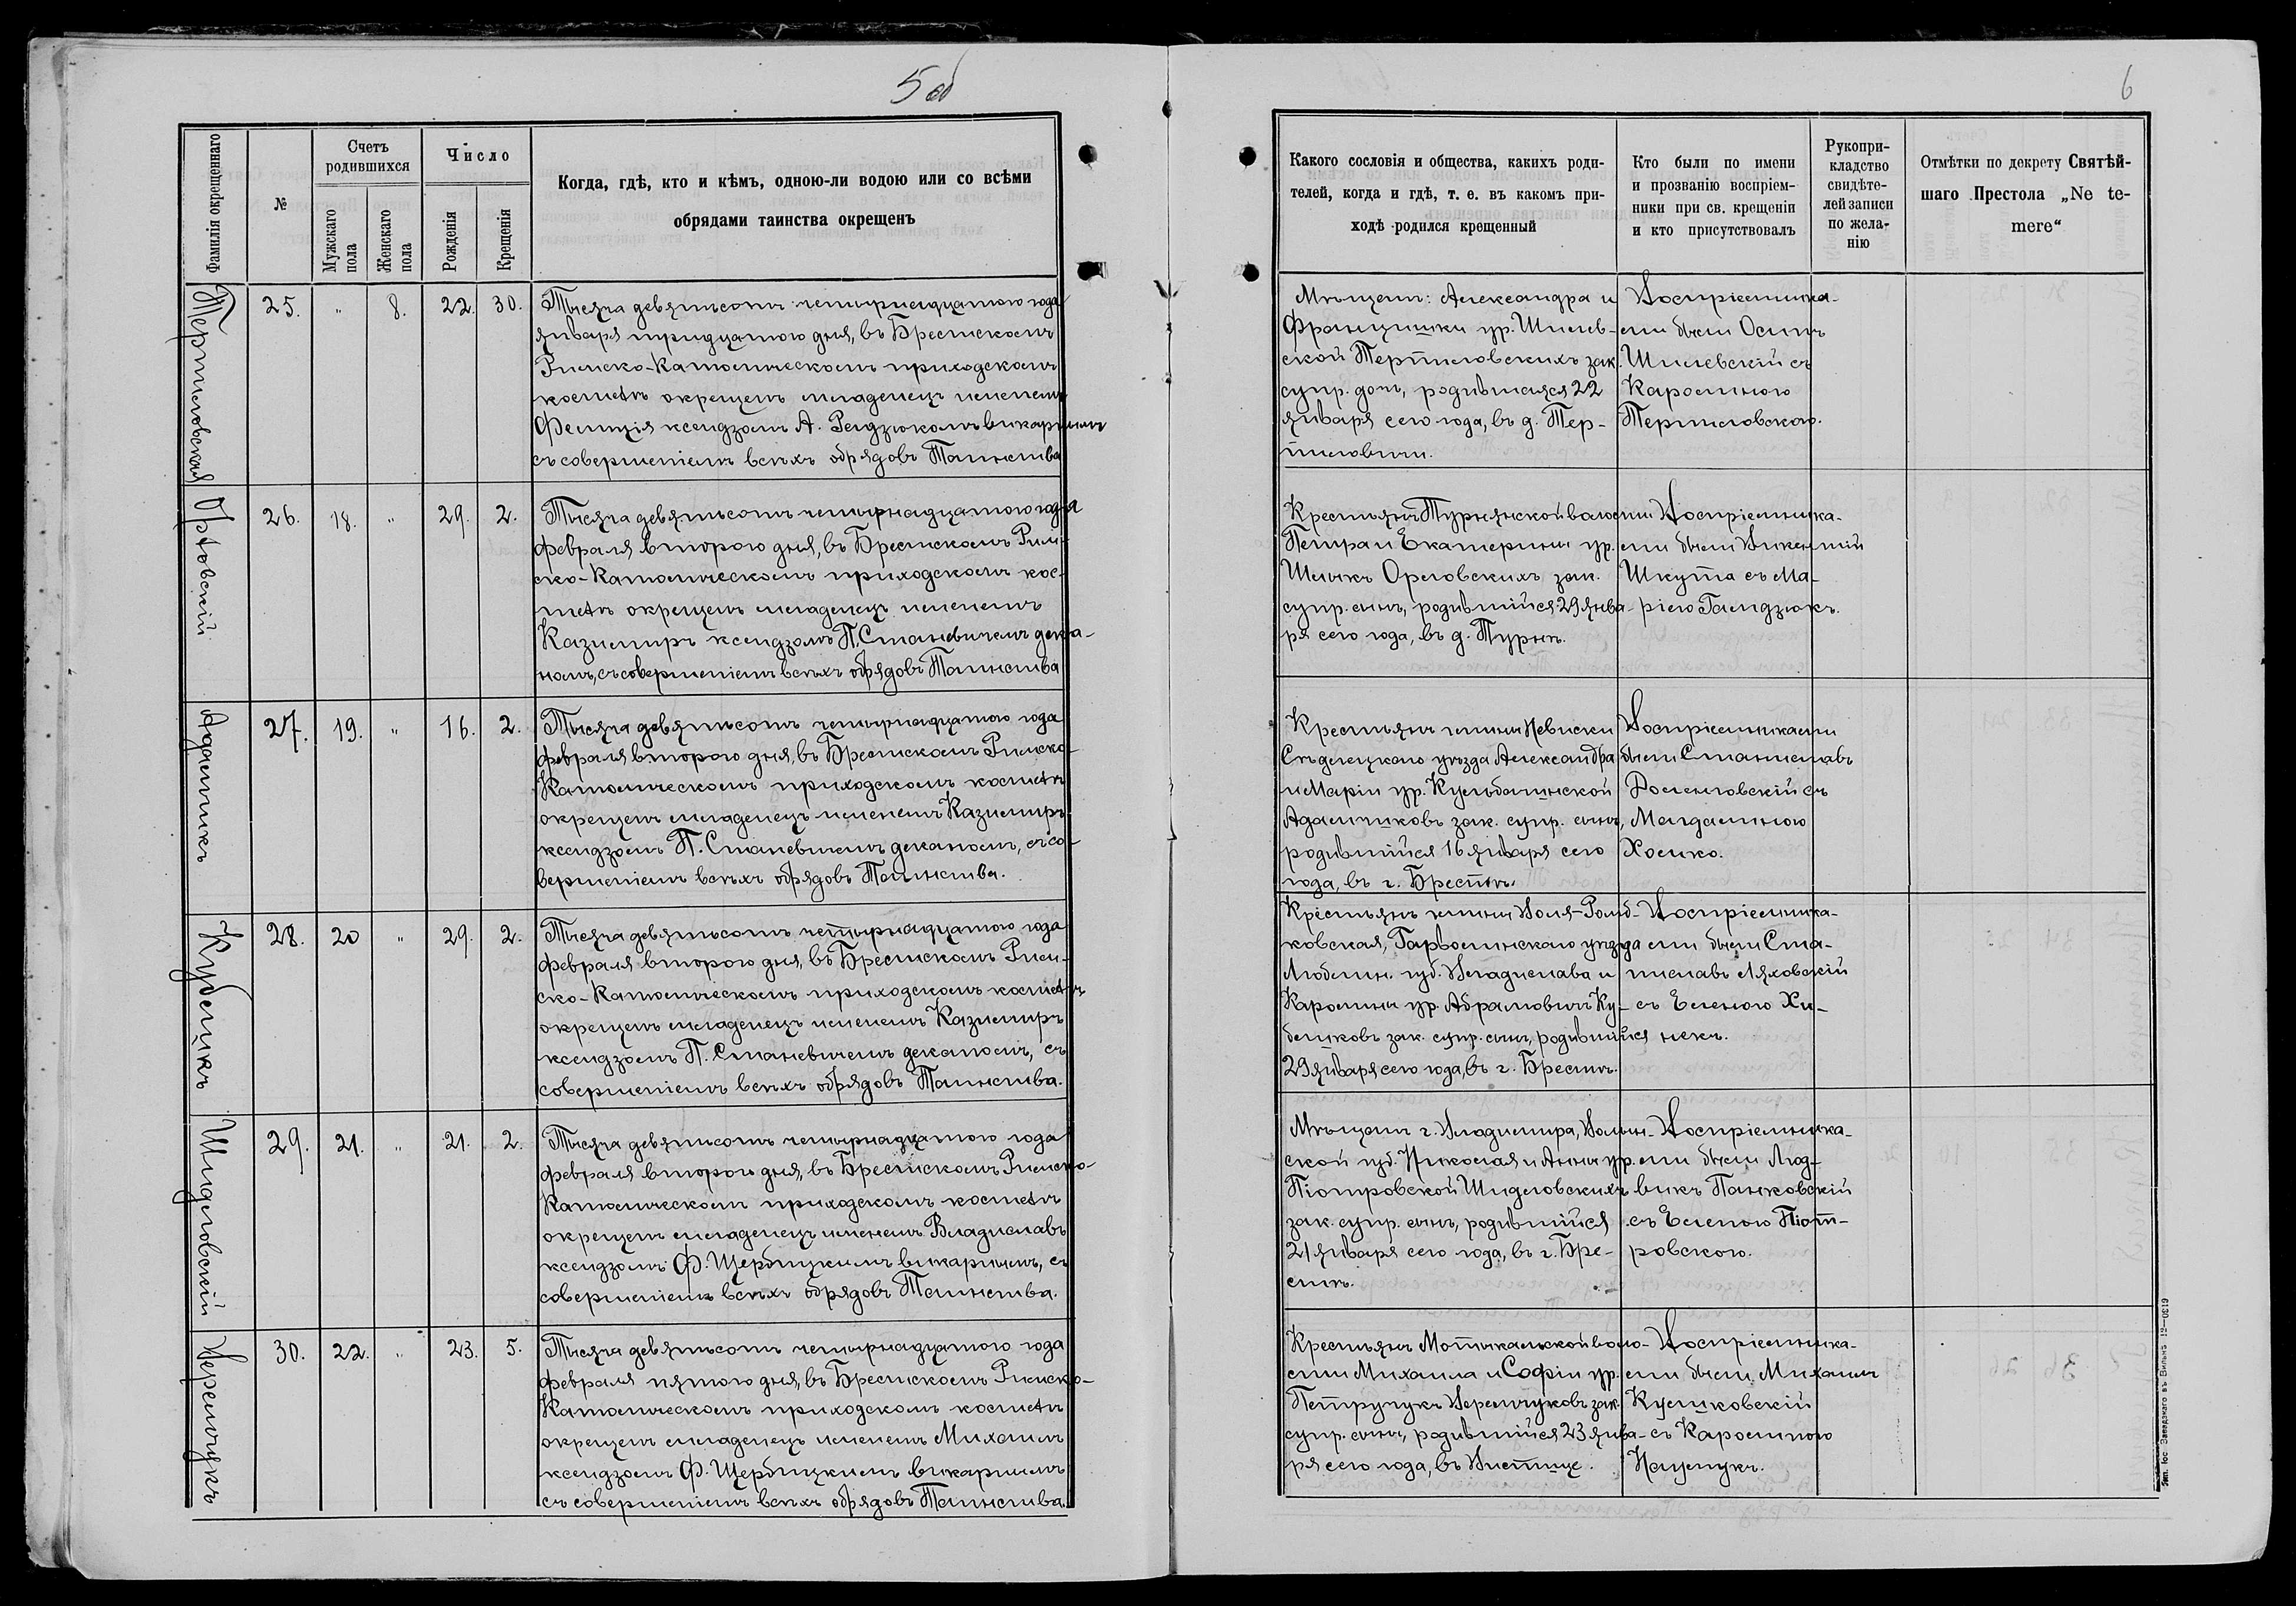 5 об
6
Фамилія окрещеннаго
№
Счетъ родившихся
Мужскаго пола
Женскаго пола
Число
Рожденія
Крещенія
Когда, гдѣ, кто и кѣмъ, одною-ли водою или со всѣми
обрядами таинства окрещенъ
Какого сословія и общества, какихъ роди-
телей, когда и гдѣ, т. е. въ какомъ при-
ходѣ родился крещенный
Кто были по имени
и прозванію воспріем-
ники при св. крещеніи
и кто присутствовалъ
Рукопри-
кладство
свидѣте-
лей записи
по жела-
нію
Отмѣтки по декрету Святѣй-
шаго Престола „Ne te-
mere“
25. " 8. 22. 30.
Тысяча девятьсотъ четырнадцатого года
января тридцатого дня, въ Брестскомъ
Римско-Католическомъ приходскомъ
костелѣ окрещенъ младенецъ именемъ
Фелиція ксендзомъ А. викарнымъ
съ совершеніемъ всѣхъ обрядовъ Таинства
Мѣщанъ: Александра и
Францишки ур. Шилев-
ской зак.
супр. дочь, родившаяся 22
января сего года, въ д. Тер-
Воспріемника-
ми были Осипъ
Шилевскій съ
Каролиною
Орловскій
26. 18. " 29. 2.
Тысяча девятьсотъ четырнадцатого года
февраля второго дня, въ Брестскомъ Рим-
ско-Католическомъ приходскомъ кос-
телѣ окрещенъ младенецъ именемъ
Казимиръ ксендзомъ П. Станевичемъ дека-
номъ, съ совершеніемъ всѣхъ обрядовъ Таинства
Крестьянъ Турнянской волости
Петра и Екатерины ур.
Орловскихъ зак.
супр. сынъ, родившійся 29 янва-
ря сего года, въ д. Турнѣ.
Воспріемника-
ми были Викентій
Шкута съ Ма-
ріею
Адамчикъ
27. 19. " 16. 2.
Тысяча девятьсотъ четырнадцатого года
февраля второго дня, въ Брестскомъ Римско-
Католическомъ приходскомъ костелѣ
окрещенъ младенецъ именемъ Казимиръ
ксендзомъ П. Станевичемъ деканомъ, съ со-
вершеніемъ всѣхъ обрядовъ Таинства.
Крестьянъ гмины
Сѣдлецкаго уѣзда Александра
и Маріи ур.
Адамчиковъ зак. супр. сынъ,
родившійся 16 января сего
года, въ г. Брестѣ.
Воспріемниками
были Станиславъ
съ
Магдалиною
Хомко.
Кубликъ
28. 20 " 29. 2.
Тысяча девятьсотъ четырнадцатого года
февраля второго дня, въ Брестскомъ Рим-
ско-Католическомъ приходскомъ костелѣ
окрещенъ младенецъ именемъ Казимиръ
ксендзомъ П. Станевичемъ деканомъ, съ
совершеніемъ всѣхъ обрядовъ Таинства.
Крестьянъ гмины Воля-
ковская, Гарволинскаго уѣзда
Люблин. губ. Владислава и
Каролины ур. Абрамовичъ Ку-
бликовъ зак. супр. сынъ, родившійся
29 января сего года, въ г. Брестѣ.
Воспріемника-
ми были Ста-
ниславъ Ляховскій
съ Еленою
Шидловскій
29. 21. " 21. 2.
Тысяча девятьсотъ четырнадцатого года
февраля второго дня, въ Брестскомъ Римско-
Католическомъ приходскомъ костелѣ
окрещенъ младенецъ именемъ Владиславъ
ксендзомъ Ф. Щербицкимъ викарнымъ, съ
совершеніемъ всѣхъ обрядовъ Таинства.
Мѣщанъ г. Владимира, Волын-
ской губ. Николая и Анны ур.
Піотровской Шидловскихъ
зак. супр. сынъ, родившійся
21 января сего года, въ г. Бре-
стѣ.
Воспріемника-
ми были Люд-
викъ Панковскій
съ Еленою Піот-
ровскою.
Веремчукъ
30. 22. " 23. 5.
Тысяча девятьсотъ четырнадцатого года
февраля пятого дня, въ Брестскомъ Римско-
Католическомъ приходскомъ костелѣ
окрещенъ младенецъ именемъ Михаилъ
ксендзомъ Ф. Щербицкимъ викарнымъ
съ совершеніемъ всѣхъ обрядовъ Таинства
Крестьянъ Мотыкальской воло-
сти Михаила и Софіи ур.
Петручукъ Веремчуковъ зак.
супр. сынъ, родившійся 23 янва-
ря сего года, въ
Воспріемника-
ми были Михаилъ
съ Каролиною